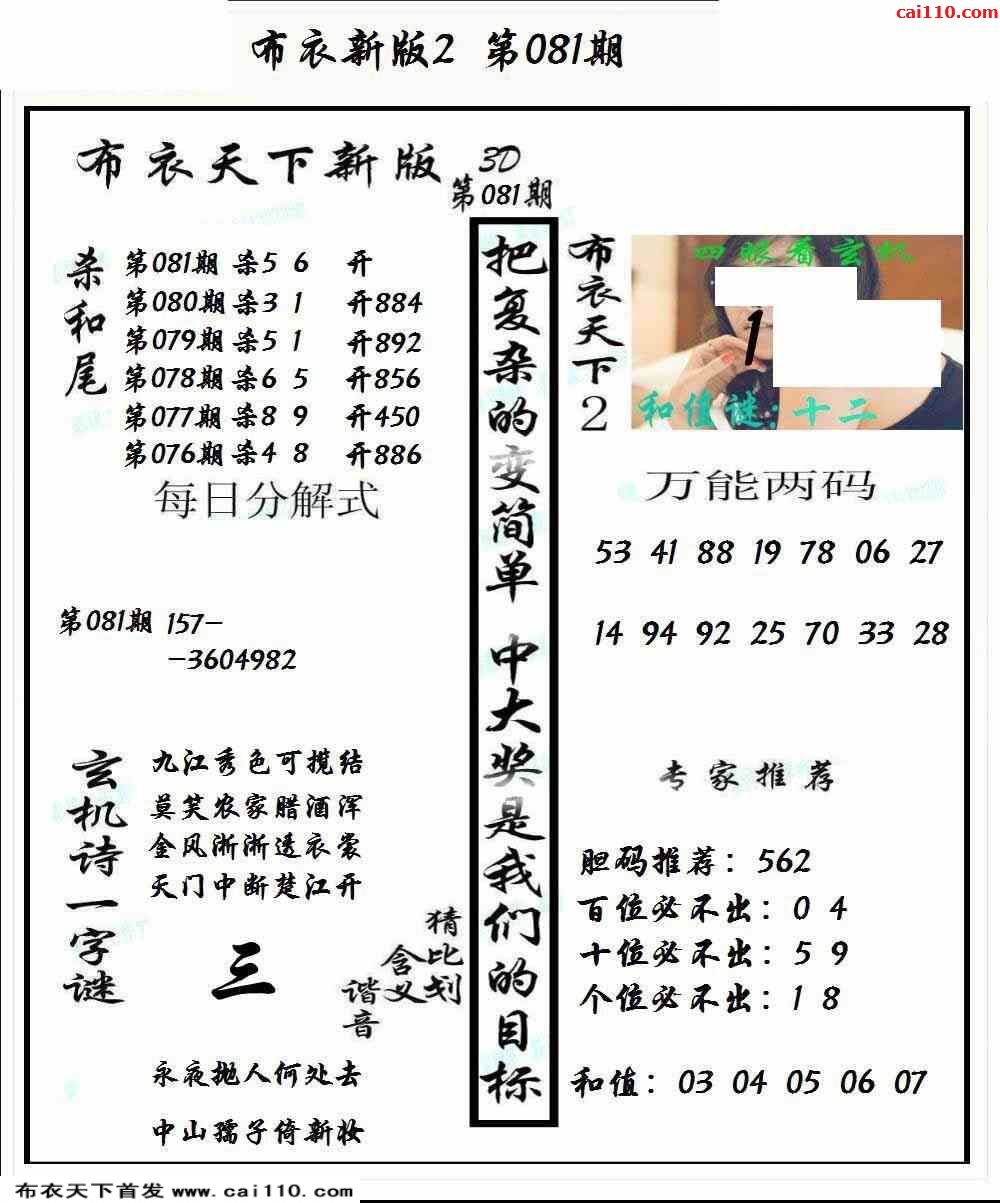 cai110.com
布衣新版2 第081期
布衣天下新版
3D
第081期
杀和尾
第081期 杀5 6 开
第080期 杀3 1 开884
第079期 杀5 1 开892
第078期 杀6 5 开856
第077期 杀8 9 开450
第076期 杀4 8 开886
每日分解式
第081期 157-
-3604982
玄机诗一字谜
九江秀色可揽结
莫笑农家腊酒浑
金风淅淅透衣裳
天门中断楚江开
三
猜比划
含义
谐音
永夜抛人何处去
中山孺子倚新妆
把复杂的变简单 中大奖是我们的目标
布衣天下2
四眼看玄机
1
和值谜:十二
万能两码
53 41 88 19 78 06 27
14 94 92 25 70 33 28
专家推荐
胆码推荐：562
百位必不出：0 4
十位必不出：5 9
个位必不出：1 8
和值：03 04 05 06 07
布衣天下首发 www.cai110.com